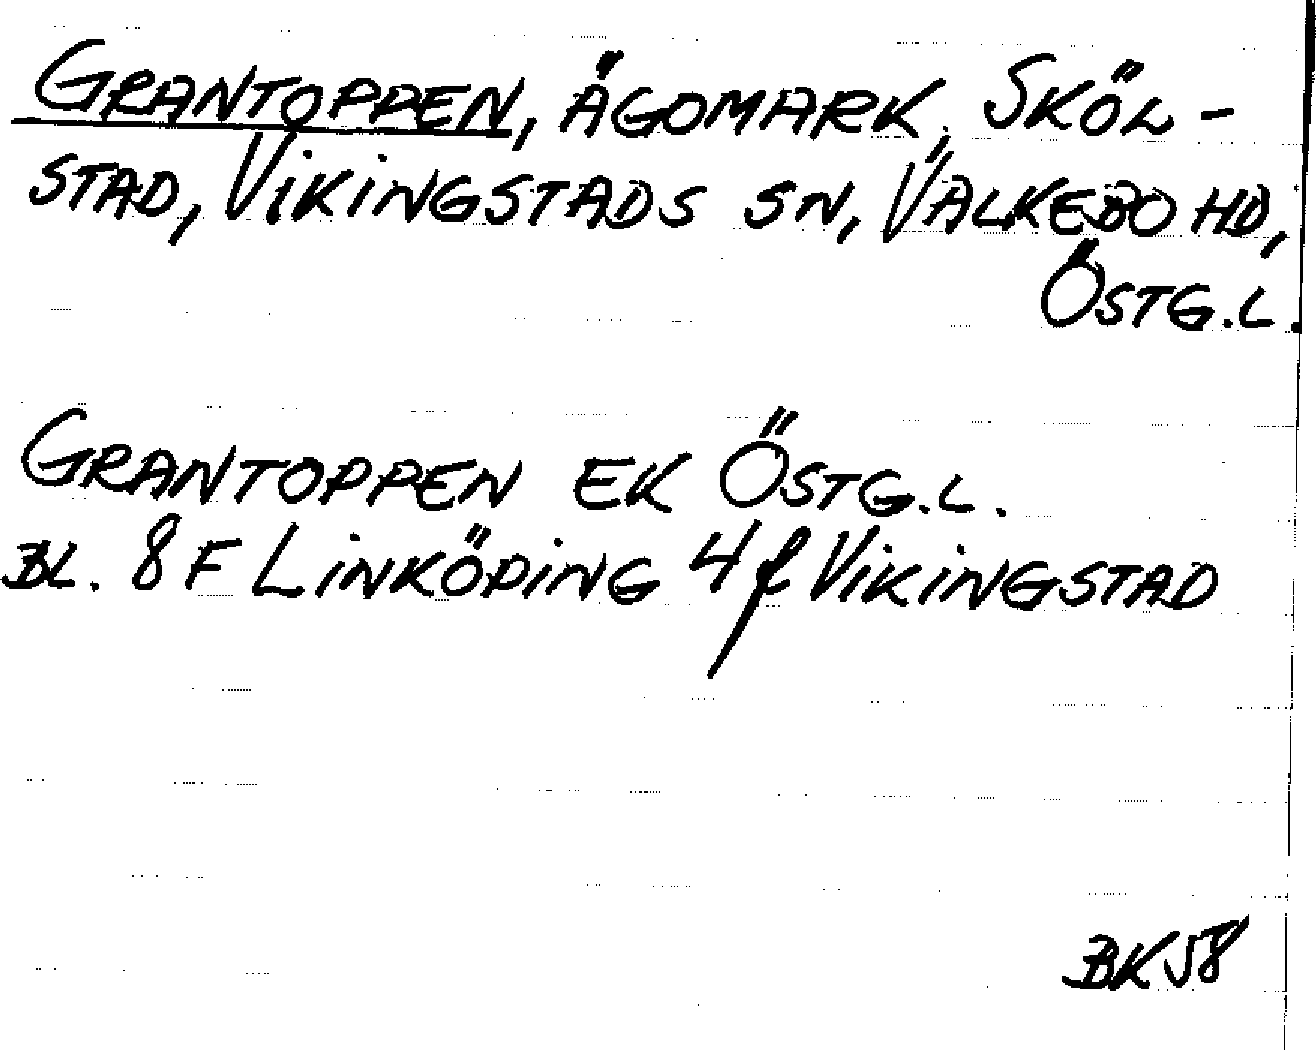 GRANTOPPEN, ÄGOMARK, SKÖL-
STAD, VIKINGSTADS SN, VALKEBO HD,
ÖSTG.L.
GRANTOPPEN EK ÖSTG.L.
BL. 8F LINKÖPING 4f VIKINGSTAD
BK58